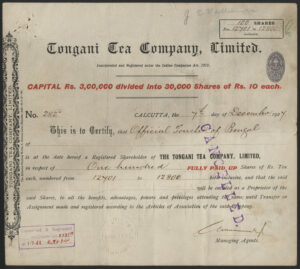 100 SHARES
Nos. 12401 to 12500
Tongani Tea Company, Limited.
Incorporated and Registered under the Indian Companies Act, 1913.
CAPITAL Rs. 3,00,000 divided into 30,000 Shares of Rs. 10 each.
No. 282 CALCUTTA, the 7th of December 1927
This is to Certify, that Official Trustee of Bengal
is at the date hereof a Registered Shareholder of THE TONGANI TEA COMPANY, LIMITED,
in respect of One hundred FULLY PAID UP Shares of Rs. Ten
each, numbered from 12401 to 12500 both inclusive, and that the said
will be entitled as a Proprietor of the
said Share, to all the benefits, advantages, powers and privileges attending the same, until Transfer or
Assignment made and registered according to the Articles of Association of the said Company.
CANCELLED
Managing Agents.